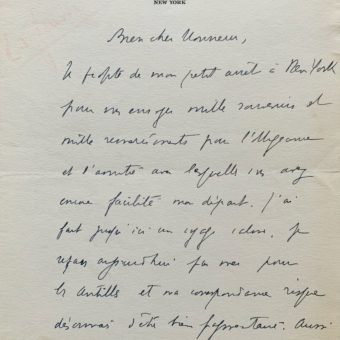 NEW YORK
Bien cher Monsieur,
Je profite de mon petit arrêt à New York
pour vous envoyer mille souvenirs et
mille remerciements pour l'élégance
et l'amitié avec lesquelles vous avez
encore facilité mon départ. J'ai
fait jusqu'ici un voyage idéal. Je
repars aujourd'hui par mer pour
les Antilles et ma correspondance risque
désormais d'être bien fragmentaire. Aussi